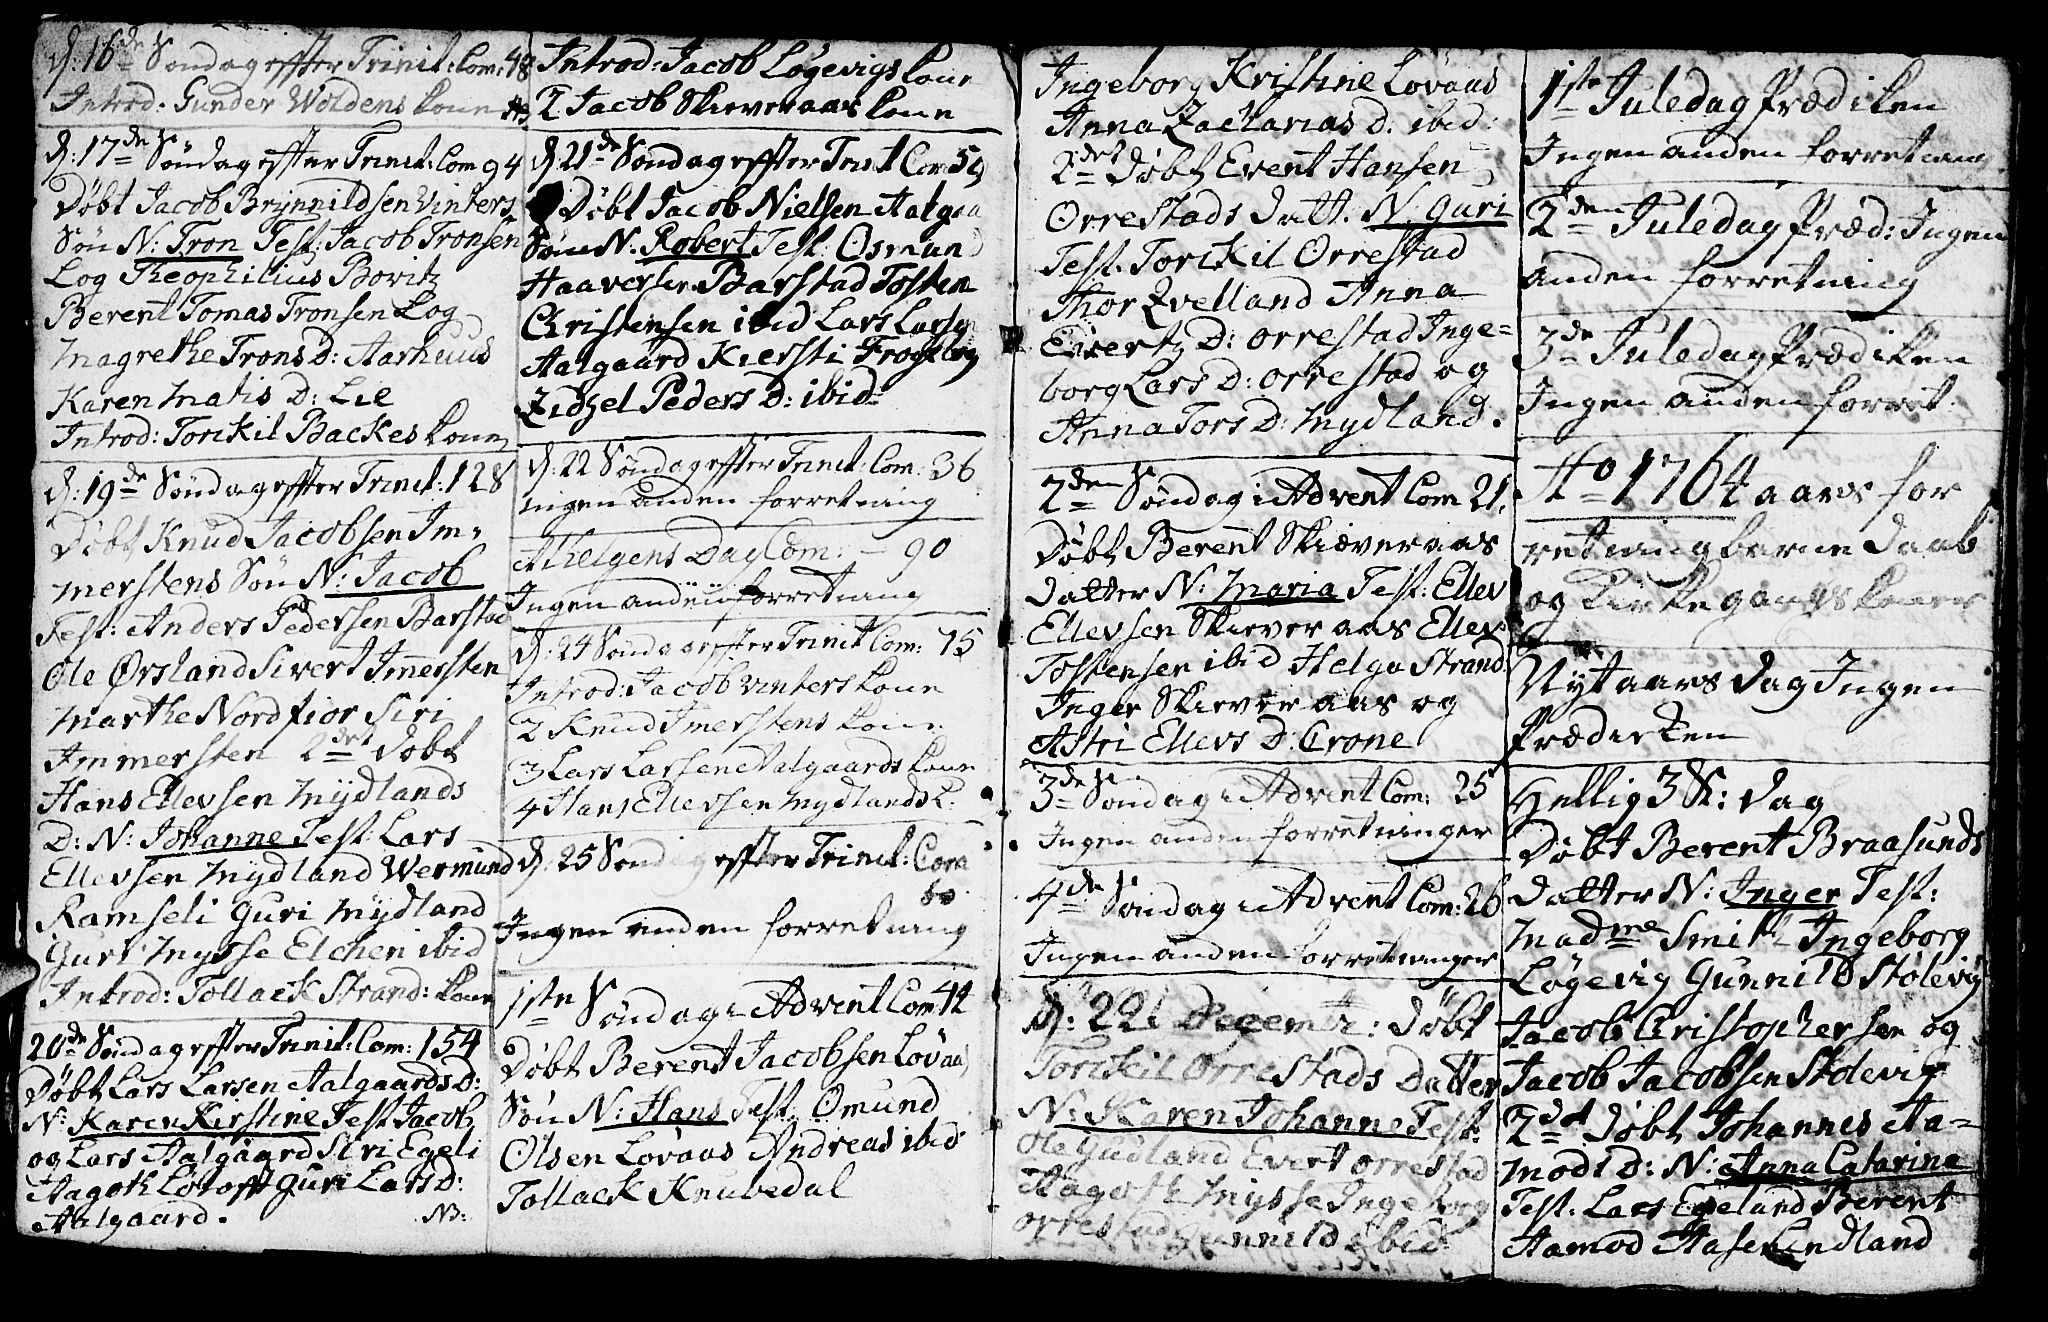 d: 16de Søndag effter Trinit: Com: 48
Introd: Gunder Woldens kone
d: 17de Søndag effter Trinit: Com 94
Døbt Jacob Brynnildsen Vinters
Søn N: Tron Test: Jacob Tronsen
Log Theophilius Bovitz
Berent Tomas Tronsen Log
Magrethe Trons D: Aarhuus
Karen Matis D: Lie
Introd: Torckil Backes kone
d: 19de Søndag effter Trinit: 128
Døbt Knud Jacobsen Im-
merstens Søn N: Jacob
Test: Anders Pedersen Barstad
Ole Ørsland Sivert Imersten
Marthe Nordfior Siri
Immersten 2det Døbt
Hans Ellevsen Mydlands
D: N: Johanne Test: Lars
Ellevsen Mydland Wermund
Ramseli Guri Mydland
Guri Mysse Elchen ibid
Introd: Tollack Strand: kone
20de Søndag effter Trinit: Com: 154
Døbt Lars Larsen Aalgaards D:
N: Karen Kirstine Test Jacob
og Lars Aalgaard Siri Egeli
Aagoth Lotofft Guri Lars D:
Aalgaard. NB:
Introd: Jacob Løgevigs kone
2 Jacob Skieveraas kone
d 21de Søndag effter Trinit Com 59
Døbt Jacob Nielsen Aalgaa
Søn N. Robert Test: Osmund
Haaversen Barstad Tosten
Christensen ibid Lars Larsen
Aalgaard Kiersti Frostberg
Zidzel Peders D: ibid
d: 22 Søndag effter Trinit: Com: 36
ingen anden forretning
Alhelgens Dag Com: - 90
Ingen anden forretning
d: 24 Søndag effter Trinit Com: 75
Introd: Jacob Vinters kone
2 Knud Imerstens kone
3 Lars Larsen Aalgaards kone
4 Hans Ellevsen Mydlands k:
d. 25 Søndag effter Trinit: Com
60
Ingen anden forretning
1ste Søndag i Advent Com 42
Døbt Berent Jacobsen Lovaas
Søn N: Hans Test. Omund
Olsen Lovaas Andreas ibid
Tollack Knubedal
Ingeborg Kristine Lovaas
Anna Zacharias D. ibid:
2det Døbt Event Hansen
Orrestads Datt. N. Guri
Test. Torckil Orrestad
Thor Qvelland Anna
Eivertz D: Orrestad Inge=
borg Lars D: Orrestad og
Anna Tors D: Mydland.
2den Søndag i Advent Com 21.
Døbt Berent Skieveraas
Datter N: Maria Test: Ellev
Ellevsen Skieveraas Ellev
Tostensen ibid Helga Strand
Inger Skieveraas og
Astri Ellevs D: Crone
3de Søndag i Advent Com: 25
Ingen anden forretninger
4de Søndag i Advent Com: 26
Ingen anden forretninger
d: 22 Decemb: Døbt
Torckil Orrestads Datter
N: Karen Johanne Test:
Ole Gudland Evert Orrestad
Aagoth Mysse Ingeborg
Orrestad Gunnild ibid
1ste Juledag Prædiken
Ingen anden forretning
2den Juledag Præd: Ingen
anden forretning
3de Juledag Prædiken
Ingen anden forret.
Ao 1764 aars for
retning Barne Daab
og Kirke gangs koner
Nytaars Dag Ingen
Prædicken
Hellig 3 K: Dag
Døbt Berent Braasunds
Datter N: Inger Test:
Madme Smith Ingeborg
Løgevig Gunnild Stølevig
Jacob Cristophersen og
Jacob Jacobsen Stolevig
2det Døbt Johannes Aa=
mods D: N: Anna Catarina
Test: Lars Egeland Berent
Aamod Aase Lindland